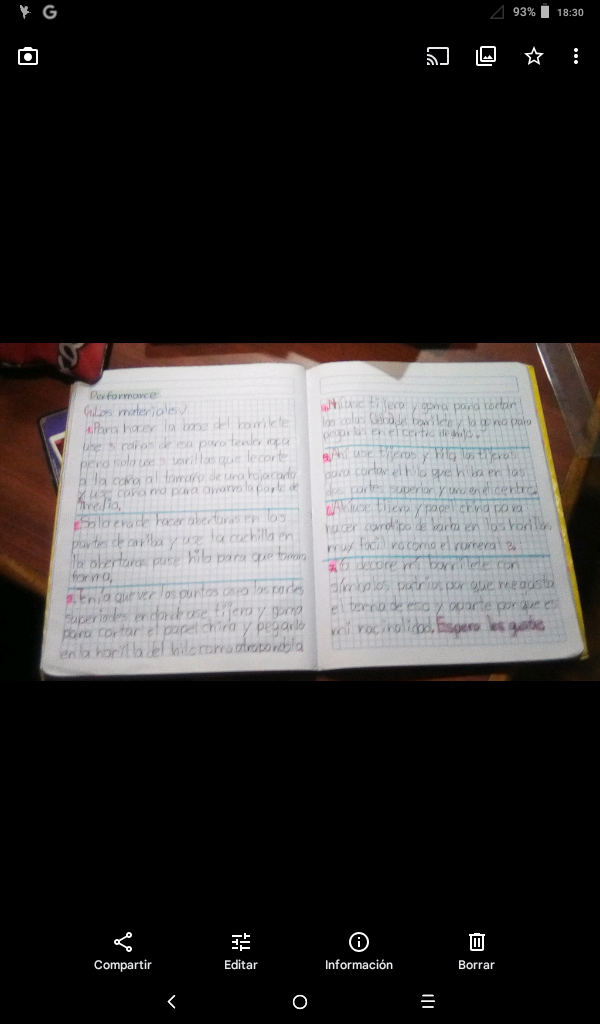 93% 18:30
Performance
Los materiales
1. Para hacer la base del barrilete
use 3 cañas de esa para tender ropa
pero solo use 3 varillas que le corte
a la caña al tamaño de una hoja carta
y use caña no para amarrar la parte de
medio.
2. Solo era de hacer aberturas en las
partes de arriba y use la cuchilla en
la aberturas puse hilo para que tomara
forma.
3. Tenía que ver los puntos osea las partes
superiores en donde use tijera y goma
para cortar el papel china y pegarlo
en la horilla del hilo como atrapandola
Ahí use tijera y goma para cortar
las colas del barrilete y la goma para
pegarlas en el centro de abajo.
Ahí use tijeras y hilo, las tijeras
para cortar el hilo que hiba en las
dos partes superior y uno en el centro.
Ahí use tijera y papel china para
hacer como tipo de barba en las horillas
muy facil no como el numeral 3.
Yo decore mi barrilete con
símbolos patrios por que me gusta
el tema de eso y aparte por que es
mi nacinalidad. Espero les guste
Compartir
Editar
Información
Borrar